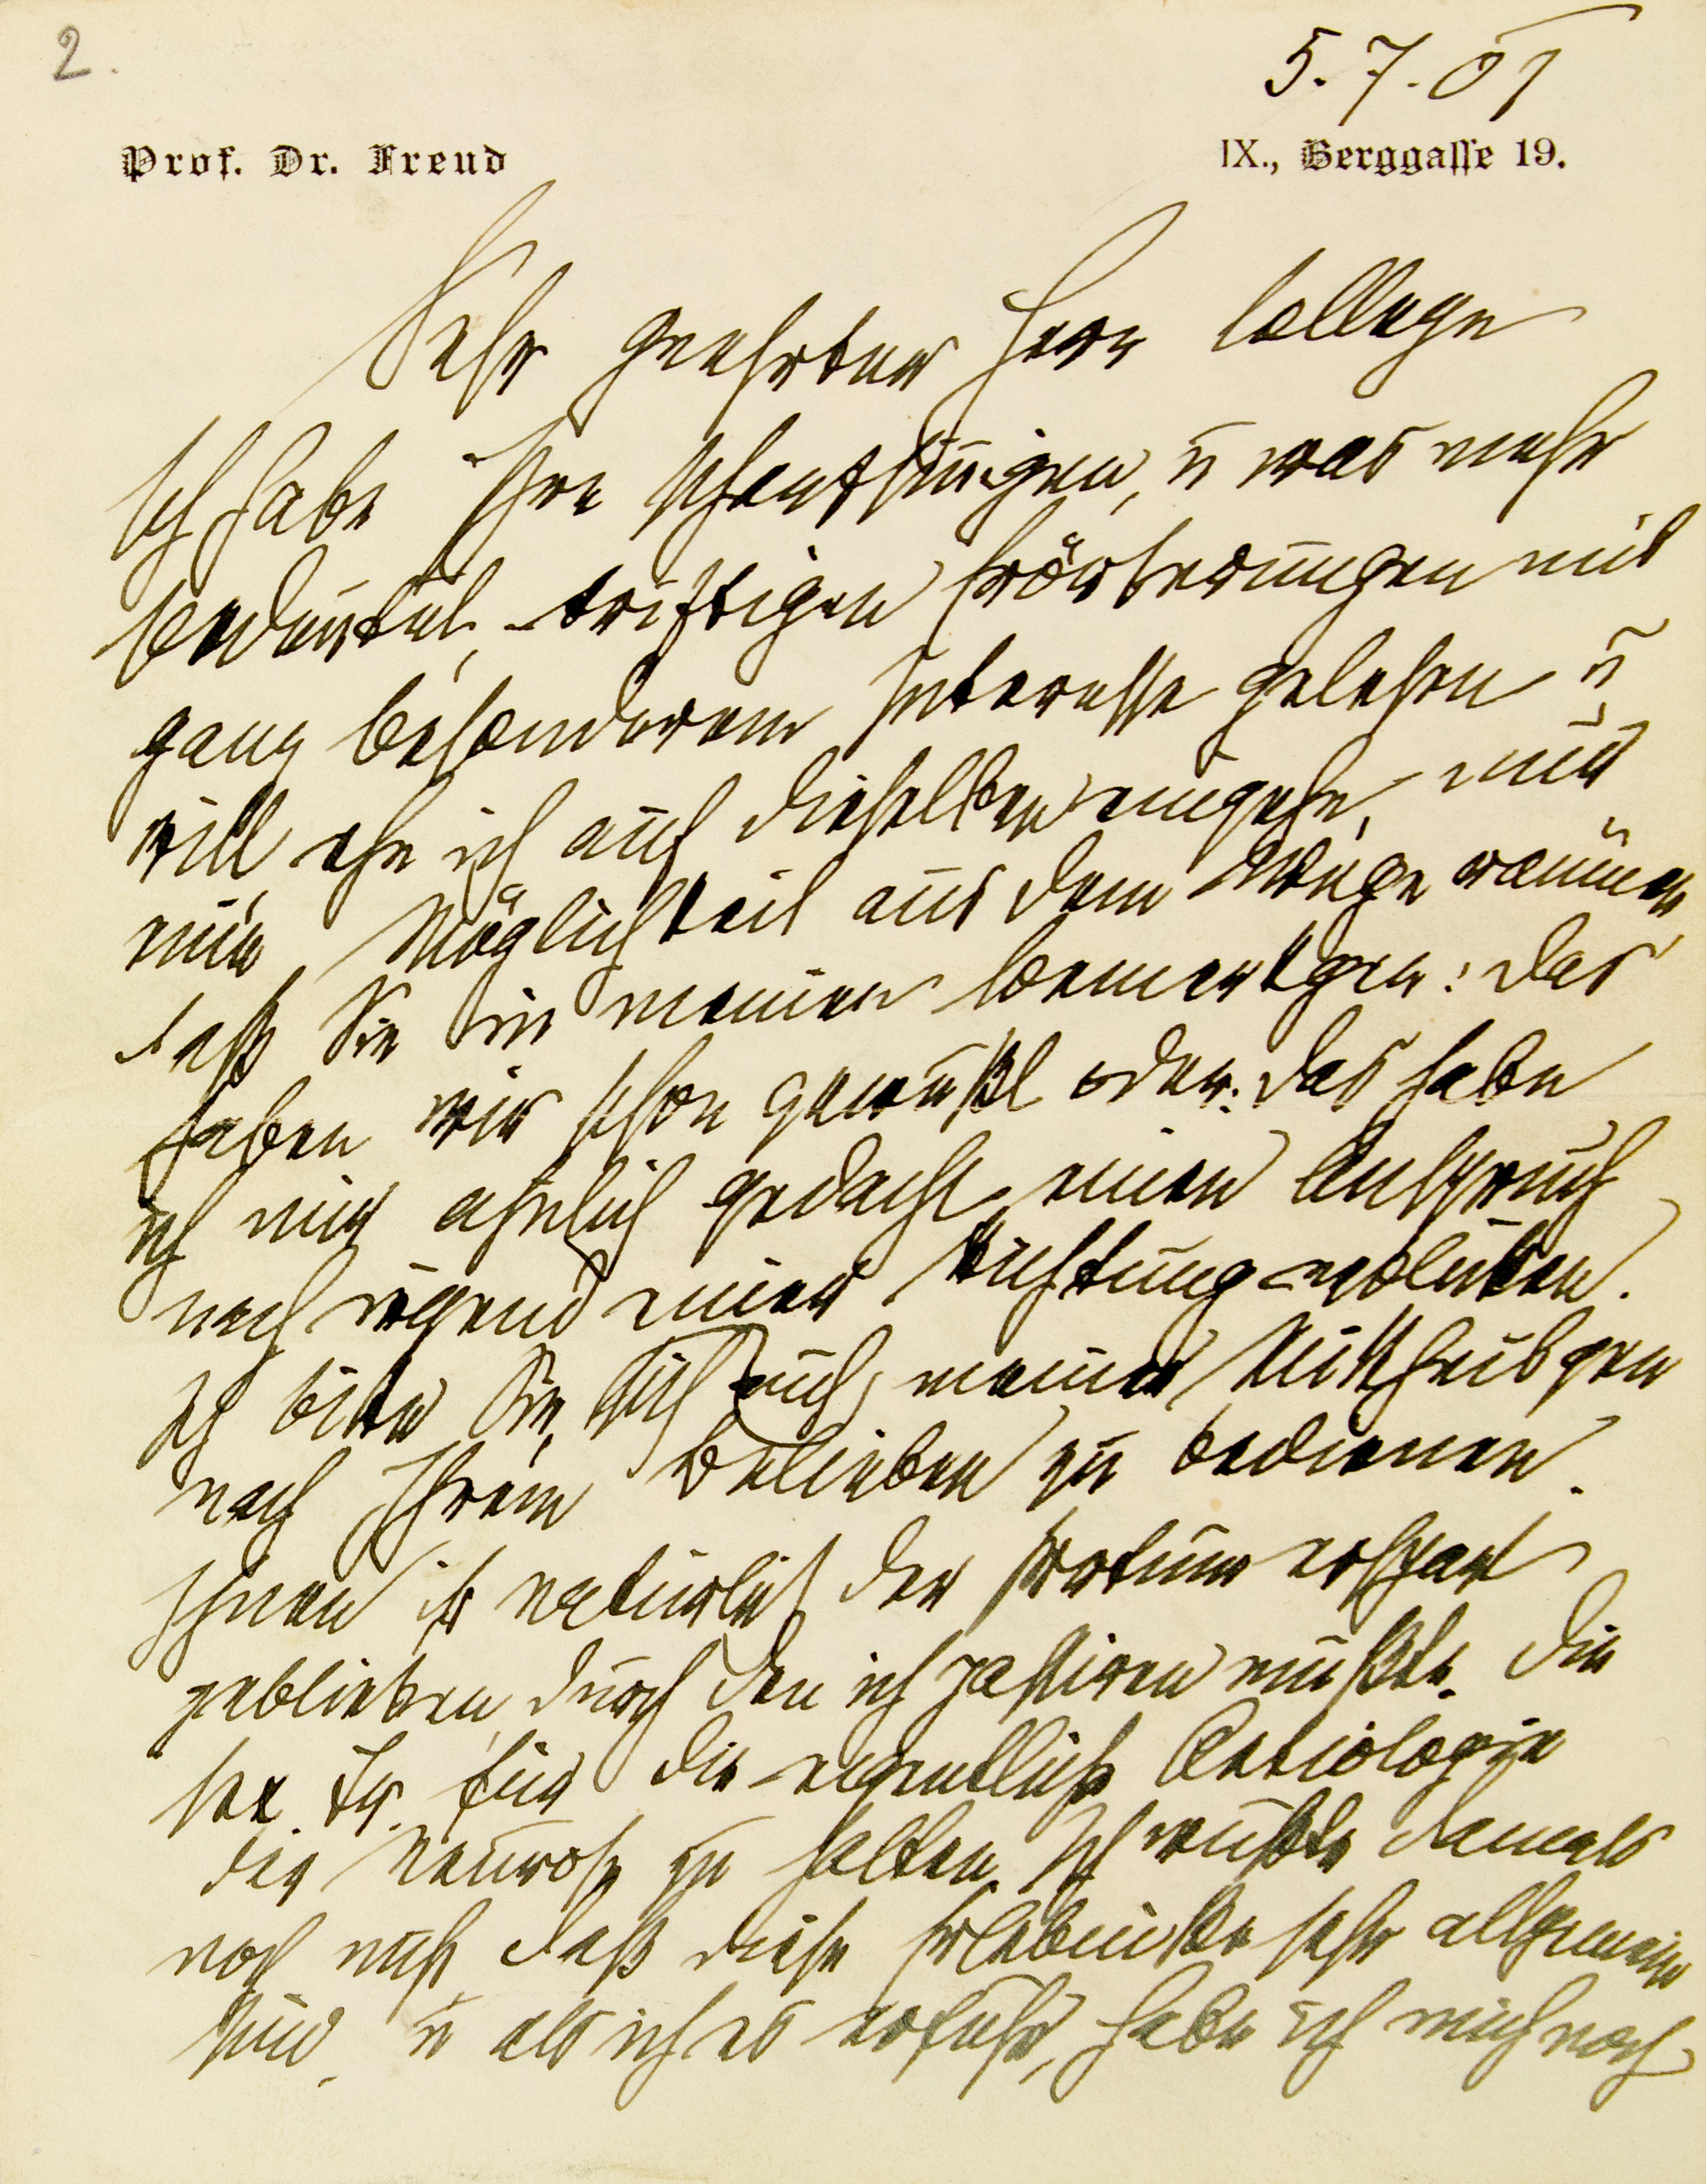 2.
5.7.07
Prof. Dr. Freud
IX., Berggasse 19.
Sehr geehrter Herr College
Ich habe Ihre scharfsinnigen, u was mehr
bedeutet, triftigen Erörterungen mit
ganz besonderem Interesse gelesen u
will ehe ich auf dieselben eingehe, nur
eine Möglichkeit aus dem Wege räumen,
daß Sie in meinen Bemerkgen: das
haben wir schon gewußt oder: das habe
ich mir ähnlich gedacht, einen Anspruch
nach irgend einer Richtung erblicken.
Ich bitte Sie, sich auch meiner Mittheilgen
nach Ihrem Belieben zu bedienen.
Ihnen ist natürlich der Irrtum erspart
geblieben, durch den ich passiren mußte, die
sex. Tr. für die eigentliche Aetiologie
der Neurose zu halten. Ich wußte damals
noch nicht daß diese Erlebnisse sehr allgemein
sind, u als ich es erfuhr, habe ich mich noch